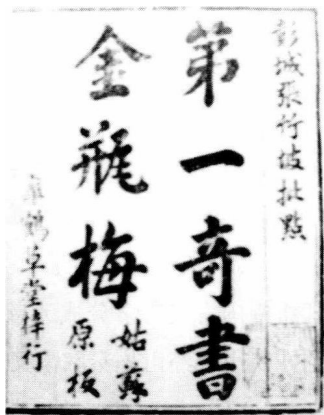 彭城張竹坡批點
第一奇書
金瓶梅
姑蘇
原板
臯鶴草堂梓行